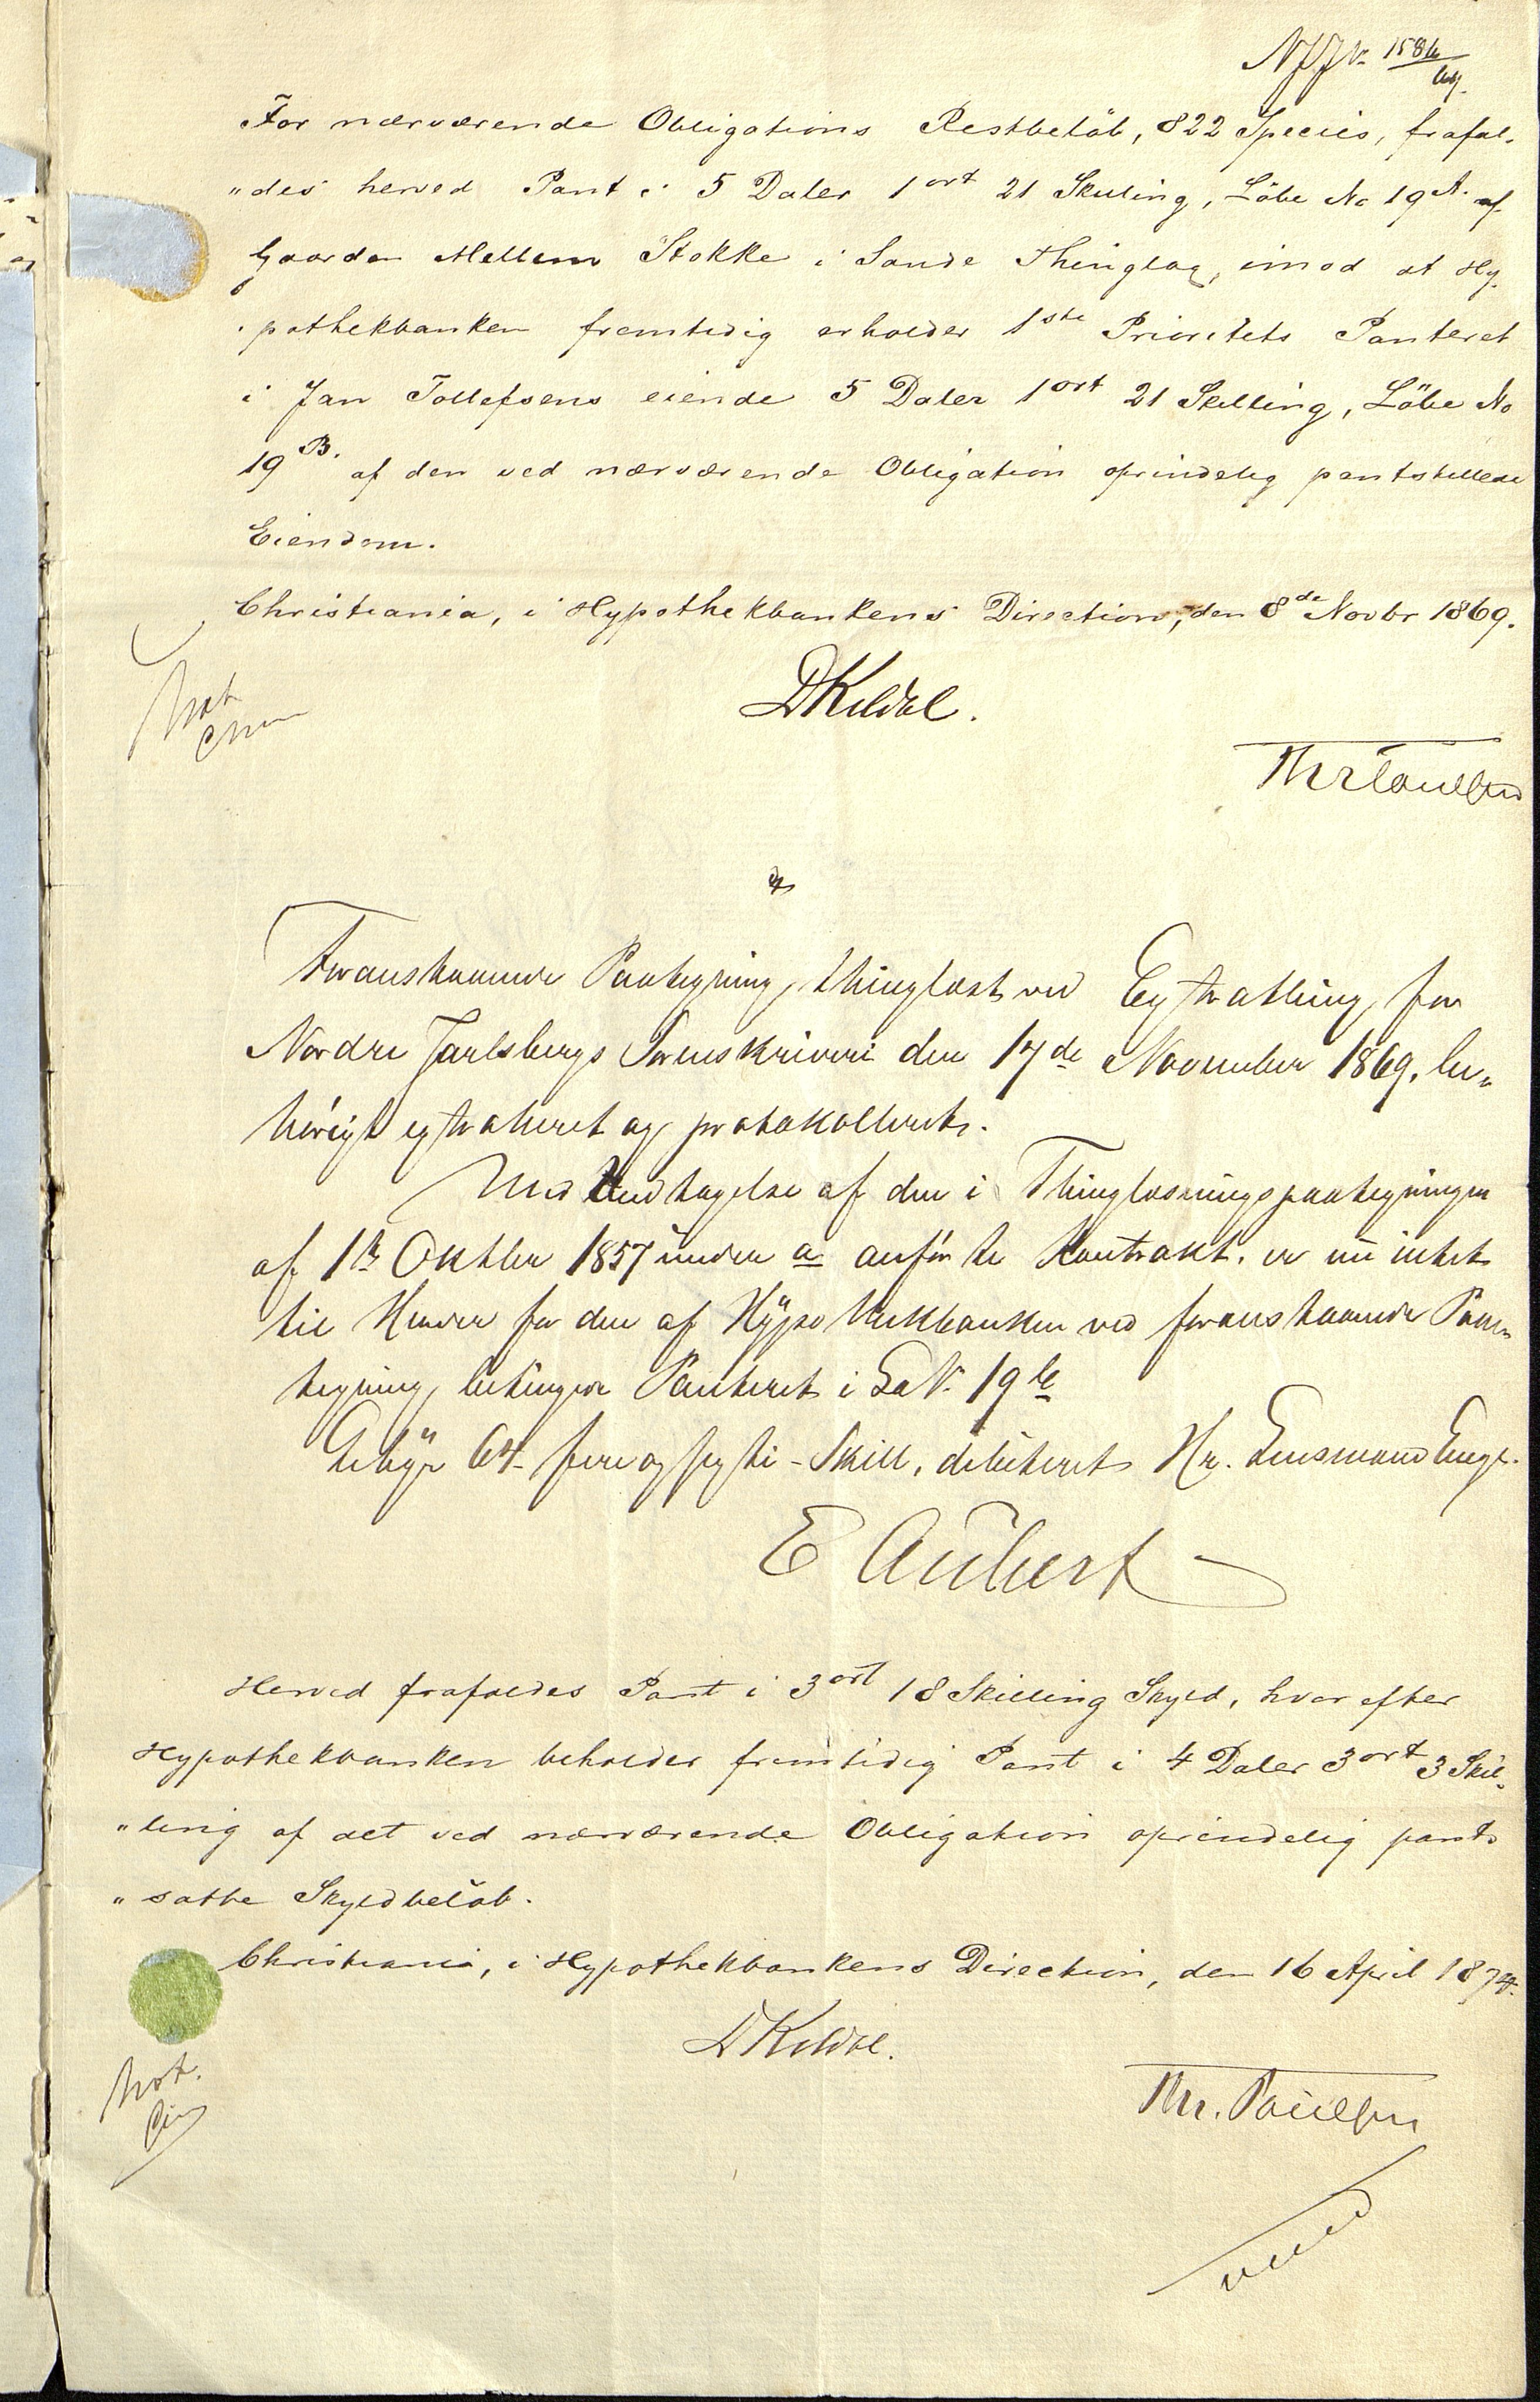 For nærværende Obligations Restbeløb, 822 Species, frafal-
„des herved Pant i 5 Daler 1 ort 21 Skilling, Løbe No 19 A. af
Gaarden Mellem Stokke i Sande Thinglag, imod at Hy-
pothekbanken fremtidig erholder 1ste Prioritets Panteret
i Jan Tollefsens eiende 5 Daler 1 ort 21 Skilling, Løbe No
19 B. af den ved nærværende Obligation oprindelig pantstillede
Eiendom.
Christiania, i Hypothekbankens Direction, den 8de Novbr 1869.
Not
DKildal.
Foranstaaende Paategning, thinglæst ved Extrathing for
Nordre Jarlsbergs Sorenskriveri den 17de November 1869, be-
hörigt extraheret og protokolleret.
Med Undtagelse af den i Thinglæsningspaategningen
af 1ste Oktber 1857 under a anförte Kontrakt, er nu intet
til Hinder for den af Hÿpothekbanken ved foranstaaende Paa-
tegning betingede Panteret i L. No. 19b
Gebÿr 64 - fire og sexti - Skill, debiteret Hr. Lensmand Enge.
E Aubert
Herved frafaldes Pant i 3 ort 18 Skilling Skyld, hvorefter
Hypothekbanken beholder fremtidig Pant i 4 Daler 3 ort 3 Skil-
„ling af det ved nærværende Obligation oprindelig pant-
„satte Skyldbeløb.
Christiania, i Hypothekbankens Direction, den 16 April 1874.
Not.
DKildal.
Thr. Paulsen